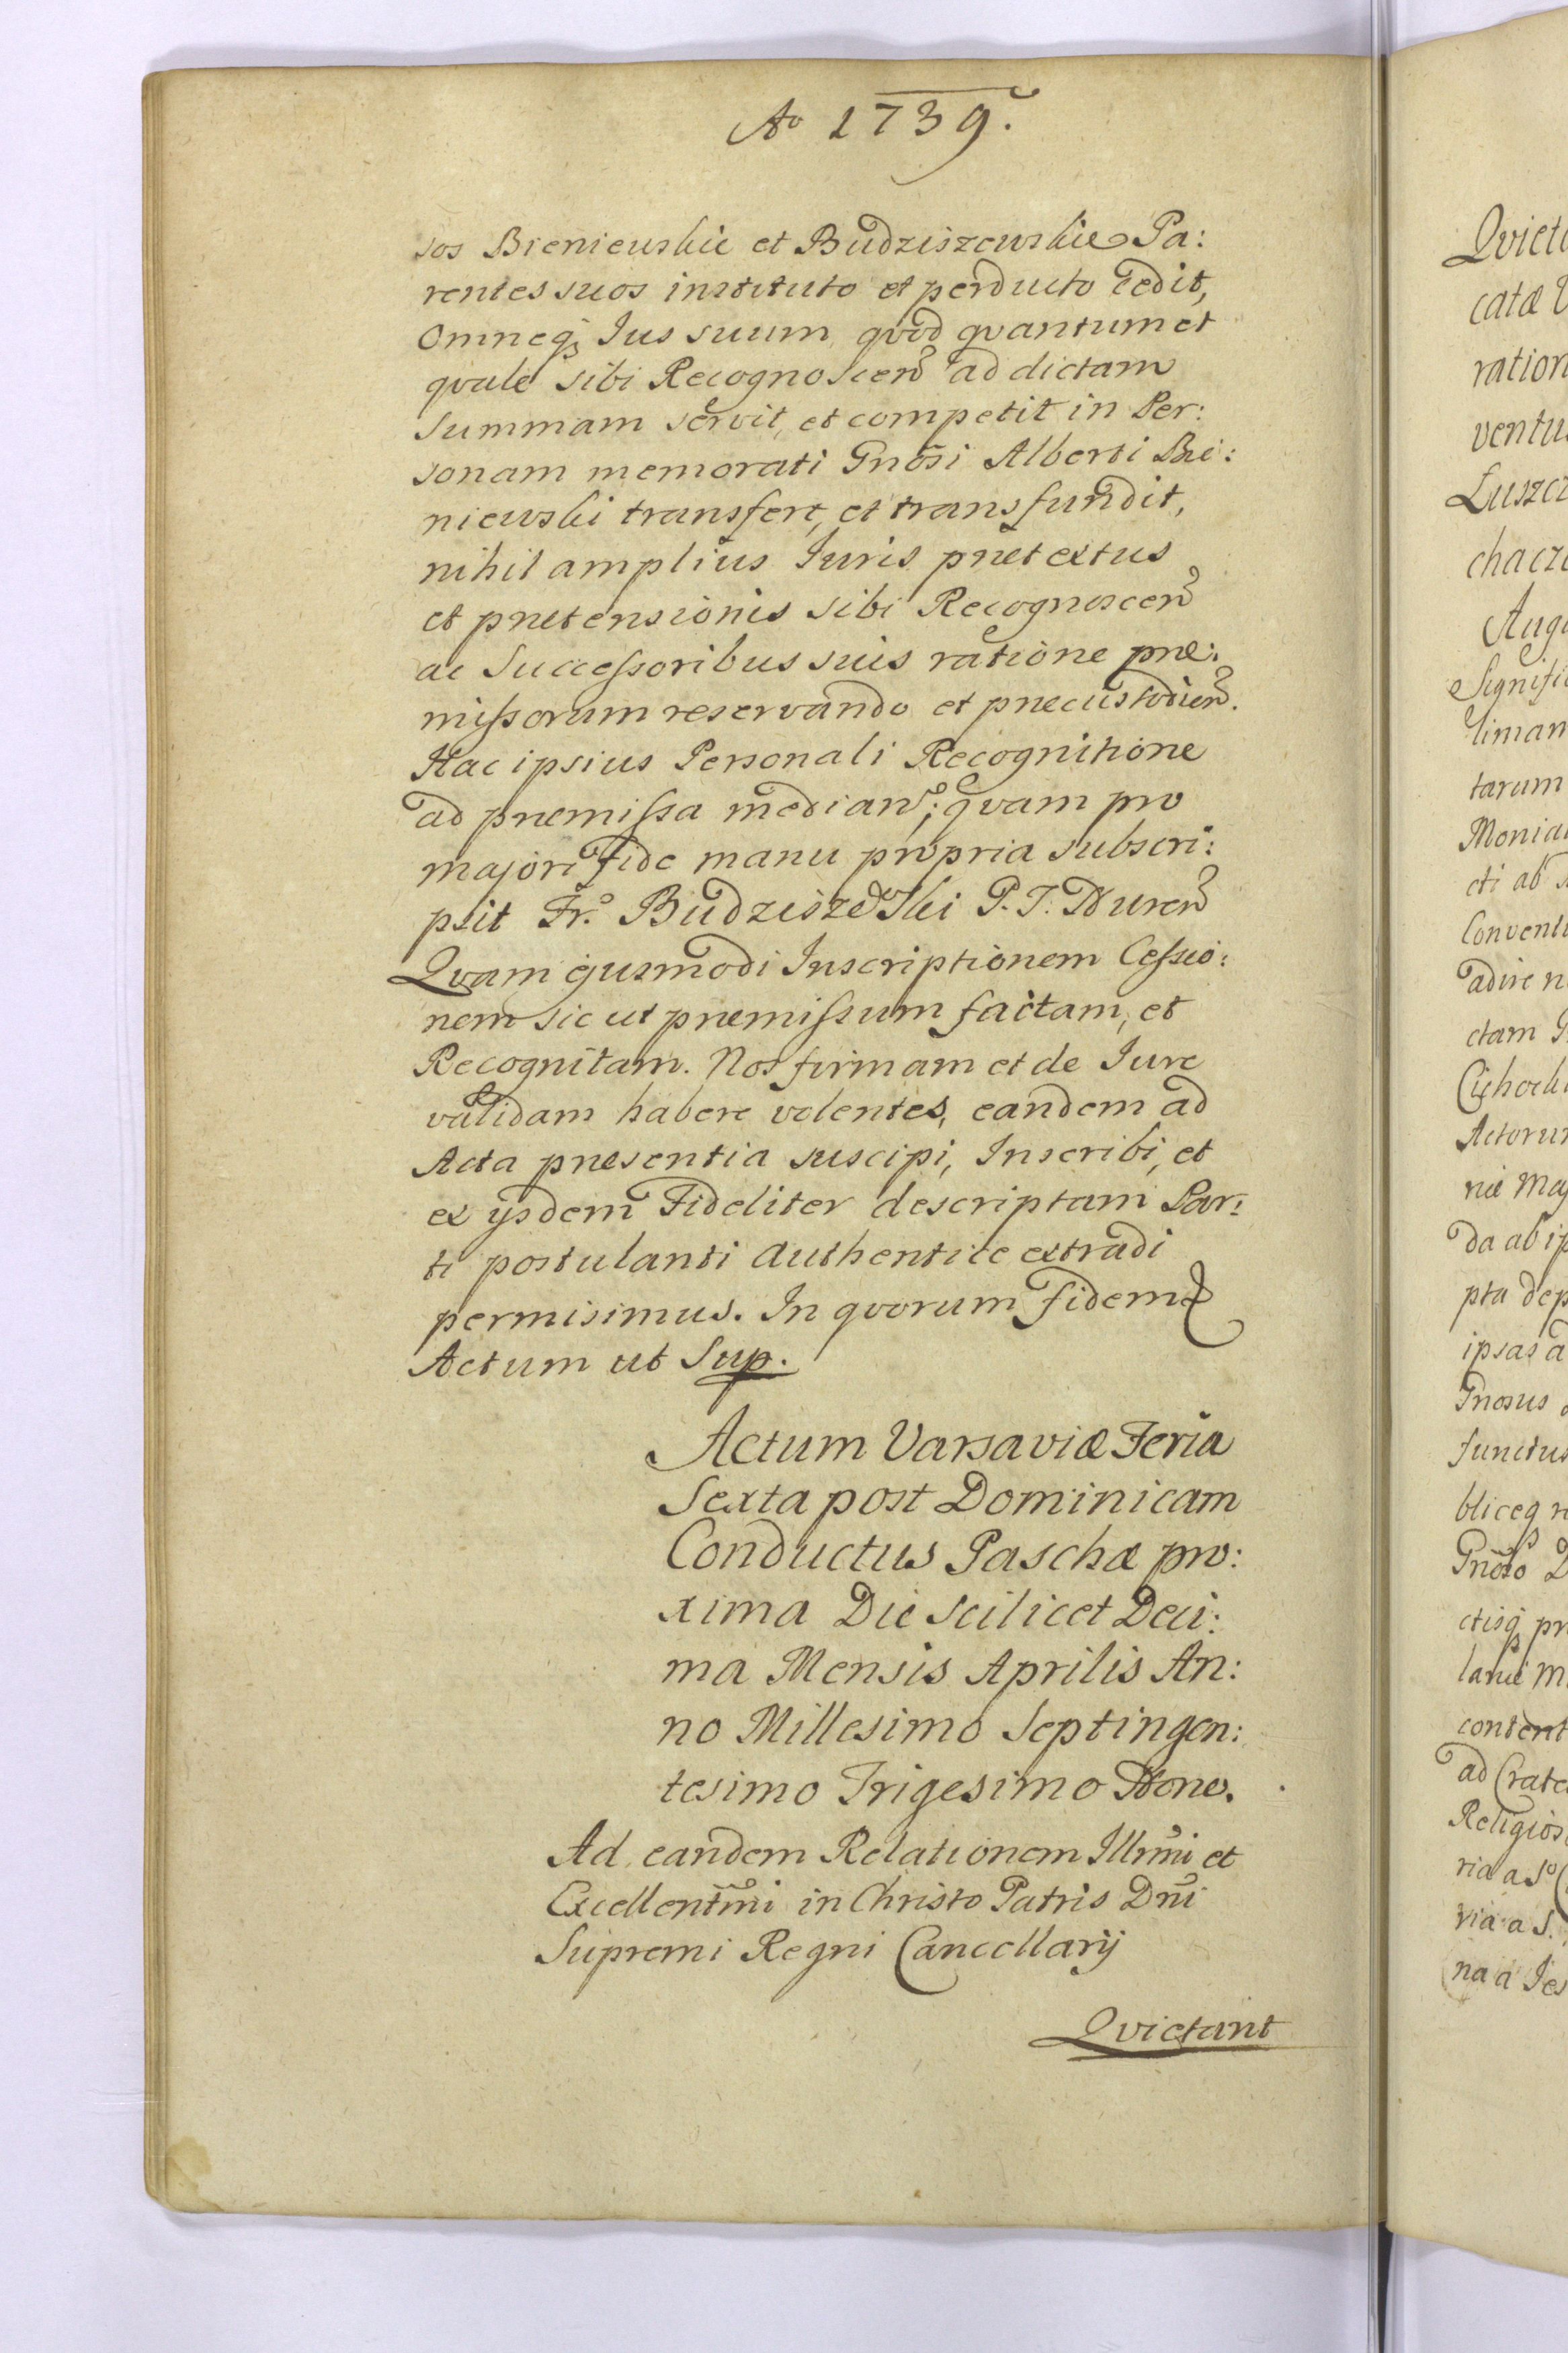 Ao 1739.
sos Bienieuskie et Budziszewskie Pa:
rentes suos instituto et perducto cedit,
Omneq3 Ius suum, qvod qvantum et
qvale sibi Recognoscen ad dictam
Summam servit, et competit in Per:
sonam memorati Gnosi Alberti Bie:
niewski transfert, et transfundit,
nihil amplius Iuris prætextus
et prætensionis sibi Recognoscen
ac Successoribus suis ratione præ:
missorum reservando et præcustodien.
Hac ipsius Personali Recognitione
ad præmissa median; qvam pro
majori Fide manu propria subscri:
psit Fr. Budziszewski P. J. Nuren
Qvam ejusmodi Inscriptionem Cessio:
nem sic ut præmissum factam, et
Recognitam. Nos firmam et de Iure
validam habere volentes, eandem ad
Acta præsentia suscipi, Inscribi, et
ex ijsdem Fideliter descriptam Par:
ti postulanti Authentice extradi
permisimus. In qvorum Fidem
Actum ut Sup.
Actum Varsaviæ Feria
Sexta post Dominicam
Conductus Paschæ pro:
xima Die scilicet Deci:
ma Mensis Aprilis An:
no Millesimo Septingen:
tesimo Trigesimo Nono.
Ad eandem Relationem Illmi et
Excellentmi in Christo Patris Dni
Supremi Regni Cancellarij
Qvietant
Qviet
catæ
ration
ventu
Luszcz
chacz
Aug
Signifi
liman
tarum
Monia
cti ab
Conventu
adire n
ctam
Cichock
Actoru
niæ Maj
da ab ip
pta dep
ipsas a
Gnosus
functus
bliceq
Gnoso
ctisq3 pr
laniæ M
content
ad Crate
Religios
ria a So
ria a S.
na a Jes